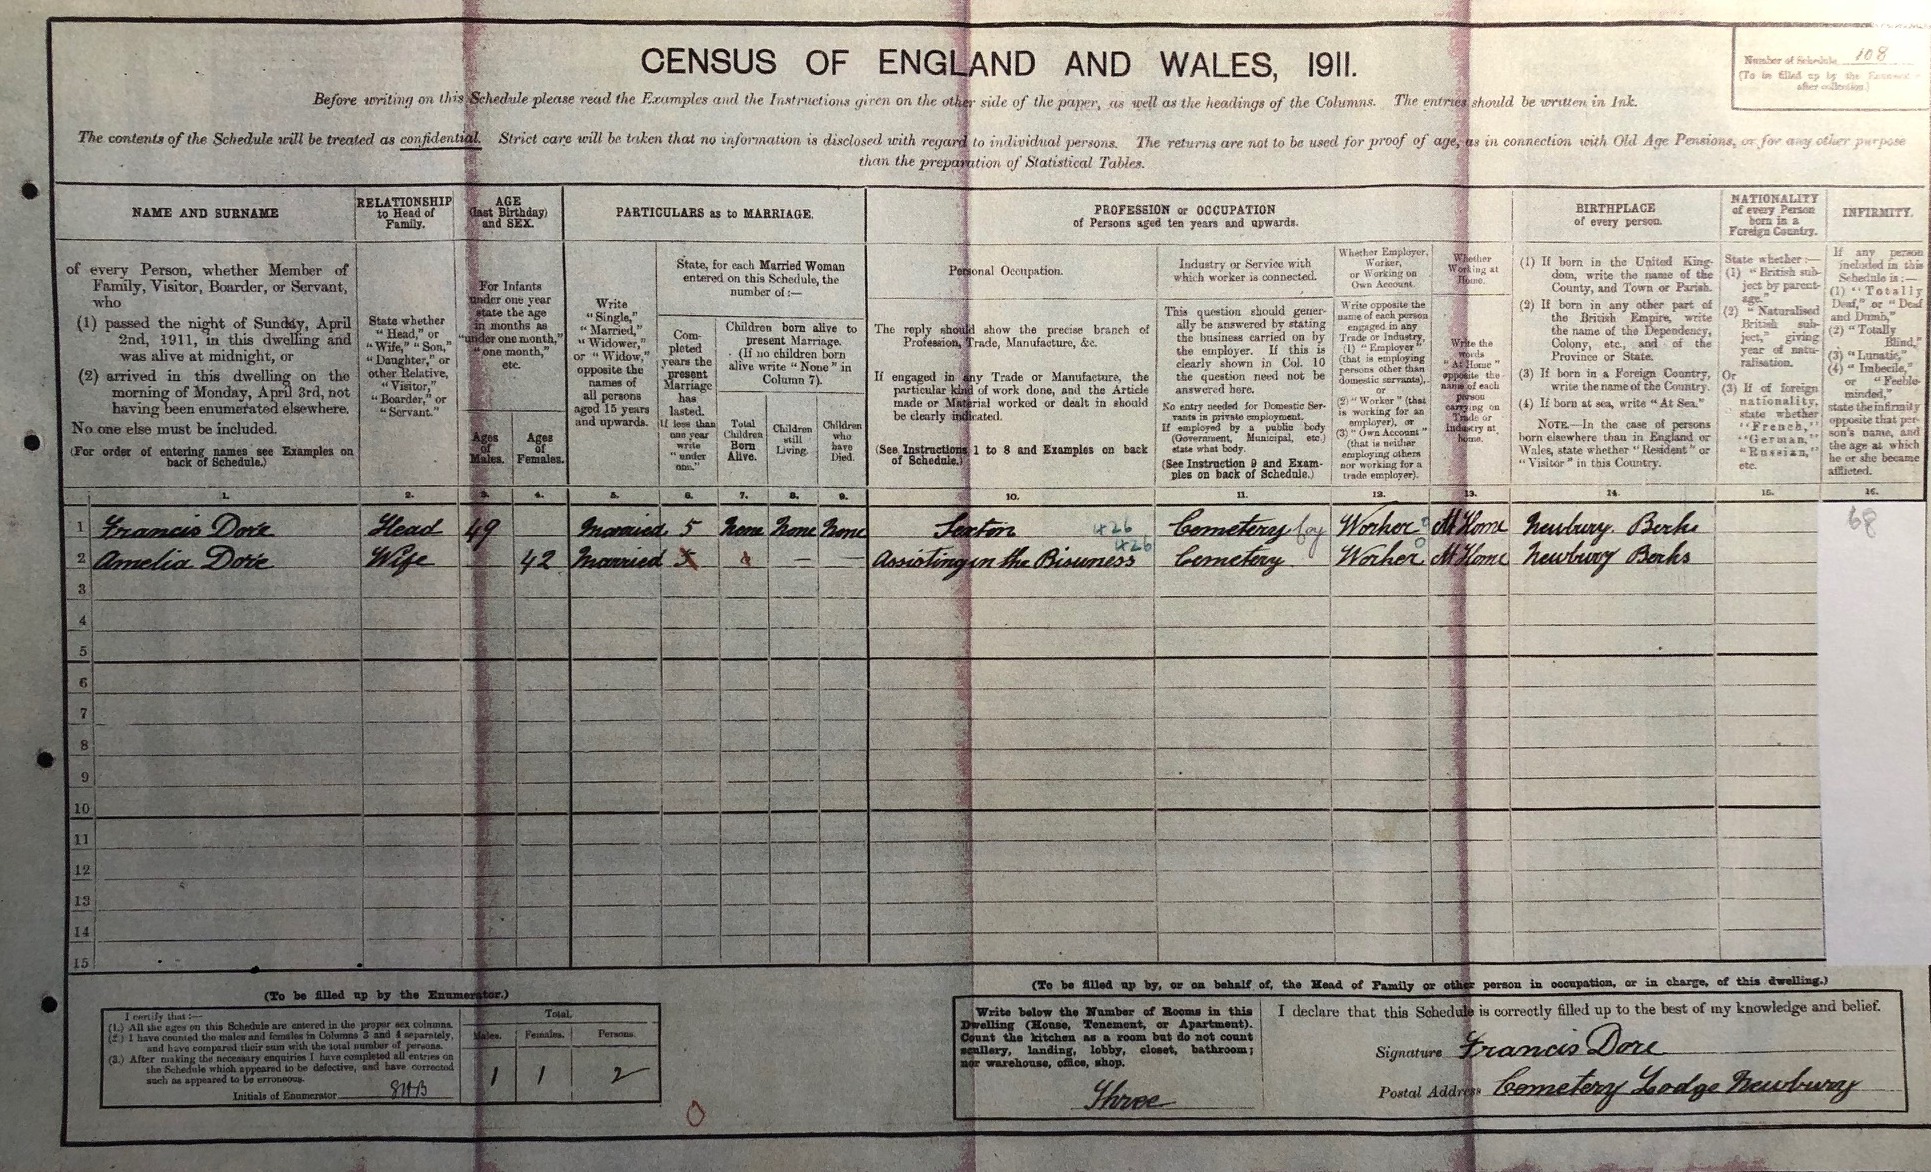 CENSUS OF ENGLAND AND WALES, 1911.
Number of Schedule 108
(To be filled up by the Enumerator after collection.)
Before writing on this Schedule please read the Examples and the Instructions given on the other side of the paper, as well as the headings of the Columns. The entries should be written in Ink.
The contents of the Schedule will be treated as confidential. Strict care will be taken that no information is disclosed with regard to individual persons. The returns are not to be used for proof of age, as in connection with Old Age Pensions, or for any other purpose
than the preparation of Statistical Tables.
NAME AND SURNAME
of every Person, whether Member of
Family, Visitor, Boarder, or Servant,
who
(1) passed the night of Sunday, April
2nd, 1911, in this dwelling and
was alive at midnight, or
(2) arrived in this dwelling on the
morning of Monday, April 3rd, not
having been enumerated elsewhere.
No one else must be included.
(For order of entering names see Examples on
back of Schedule.)
RELATIONSHIP
to Head of
Family.
State whether
"Head," or
"Wife," "Son,"
"Daughter," or
other Relative,
"Visitor,"
"Boarder," or
"Servant."
AGE
(last Birthday)
and SEX.
For Infants
under one year
state the age
in months as
"under one month,"
"one month,"
etc.
Ages
of
Males.
Ages
of
Females.
PARTICULARS as to MARRIAGE.
Write
"Single,"
"Married,"
"Widower,"
or "Widow,"
opposite the
names of
all persons
aged 15 years
and upwards.
State, for each Married Woman
entered on this Schedule, the
number of:—
Com-
pleted
years the
present
Marriage
has
lasted.
If less than
one year
write
"under
one."
Children born alive to
present Marriage.
(If no children born
alive write "None" in
Column 7).
Total
Children
Born
Alive.
Children
still
Living.
Children
who
have
Died.
PROFESSION or OCCUPATION
of Persons aged ten years and upwards.
Personal Occupation.
The reply should show the precise branch of
Profession, Trade, Manufacture, &c.
If engaged in any Trade or Manufacture, the
particular kind of work done, and the Article
made or Material worked or dealt in should
be clearly indicated.
(See Instructions 1 to 8 and Examples on back
of Schedule.)
Industry or Service with
which worker is connected.
This question should gener-
ally be answered by stating
the business carried on by
the employer. If this is
clearly shown in Col. 10
the question need not be
answered here.
No entry needed for Domestic Ser-
vants in private employment.
If employed by a public body
(Government, Municipal, etc.)
state what body.
(See Instruction 9 and Exam-
ples on back of Schedule.)
Whether Employer,
Worker,
or Working on
Own Account.
Write opposite the
name of each person
engaged in any
Trade or Industry,
(1) "Employer"
(that is employing
persons other than
domestic servants),
or
(2) "Worker" (that
is working for an
employer), or
(3) "Own Account"
(that is neither
employing others
nor working for a
trade employer).
Whether
Working at
Home.
Write the
words
"At Home"
opposite the
name of each
person
carrying on
Trade or
Industry at
home.
BIRTHPLACE
of every person.
(1) If born in the United King-
dom, write the name of the
County, and Town or Parish.
(2) If born in any other part of
the British Empire, write
the name of the Dependency,
Colony, etc., and of the
Province or State.
(3) If born in a Foreign Country,
write the name of the Country.
(4) If born at sea, write "At Sea."
NOTE.—In the case of persons
born elsewhere than in England or
Wales, state whether "Resident" or
"Visitor" in this Country.
NATIONALITY
of every Person
born in a
Foreign Country.
State whether:—
(1) "British sub-
ject by parent-
age."
(2) "Naturalised
British sub-
ject," giving
year of natu-
ralisation.
Or
(3) If of foreign
nationality,
state whether
"French,"
"German,"
"Russian,"
etc.
INFIRMITY.
If any person
included in this
Schedule is:—
(1) "Totally
Deaf," or "Deaf
and Dumb,"
(2) "Totally
Blind,"
(3) "Lunatic,"
(4) "Imbecile,"
or "Feeble-
minded,"
state the infirmity
opposite that per-
son's name, and
the age at which
he or she became
afflicted.
1. 2. 3. 4. 5. 6. 7. 8. 9. 10. 11. 12. 13. 14. 15. 16.
1 Francis Dore Head 49 Married 5 None None None Sexton 426 Cemetery Worker At Home Newbury. Berks 68
2 Amelia Dore Wife 42 Married 5 — — Assisting in the Bisuness 426 Cemetery Worker 0 At Home Newbury Berks
3
4
5
6
7
8
9
10
11
12
13
14
15
(To be filled up by the Enumerator.)
I certify that:—
(1.) All the ages on this Schedule are entered in the proper sex columns.
(2.) I have counted the males and females in Columns 3 and 4 separately,
and have compared their sum with the total number of persons.
(3.) After making the necessary enquiries I have completed all entries on
the Schedule which appeared to be defective, and have corrected
such as appeared to be erroneous.
Initials of Enumerator
Total.
Males. Females. Persons.
1 1 2
0
(To be filled up by, or on behalf of, the Head of Family or other person in occupation, or in charge, of this dwelling.)
Write below the Number of Rooms in this
Dwelling (House, Tenement, or Apartment).
Count the kitchen as a room but do not count
scullery, landing, lobby, closet, bathroom;
nor warehouse, office, shop.
Three
I declare that this Schedule is correctly filled up to the best of my knowledge and belief.
Signature Francis Dore
Postal Address Cemetery Lodge Newbury